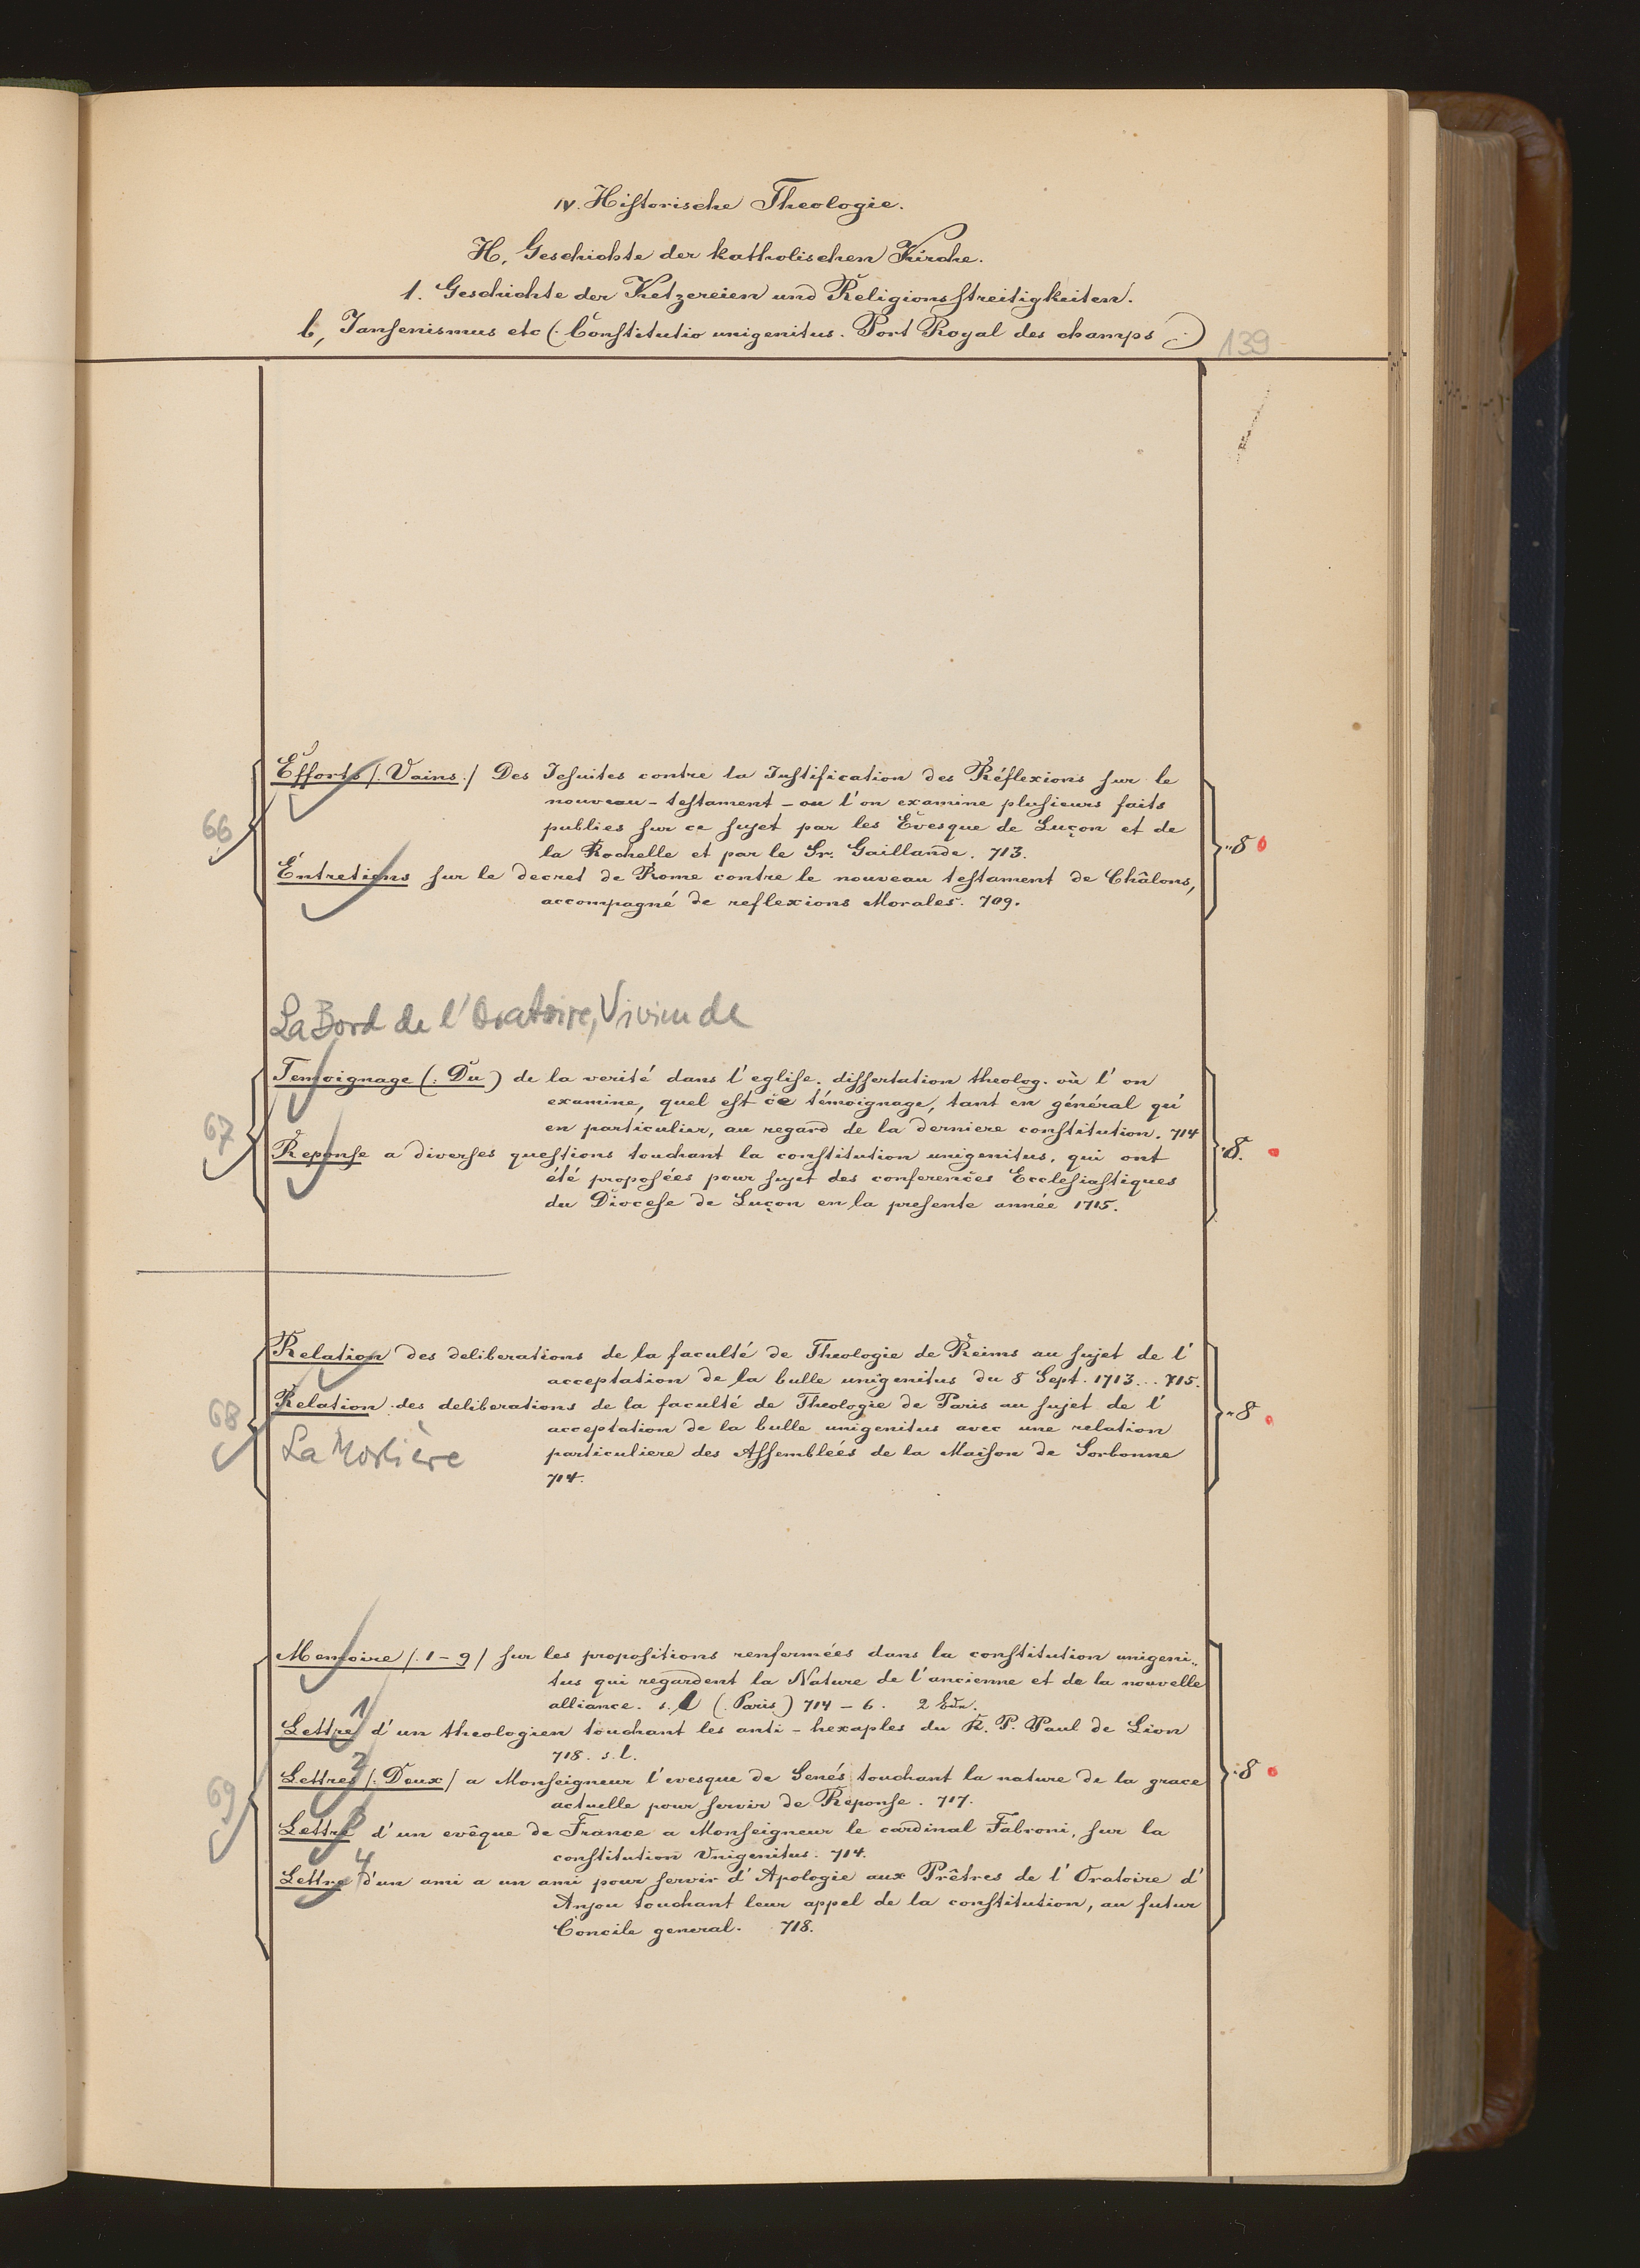 IV. Historische Theologie.
H. Geschichte der katholischen Kirche.
1. Geschichte der Ketzereien und Religionsstreitigkeiten.
b, Jansenismus etc (: Constitutio unigenitus. Port Royal des champs :)
139
Efforts /: Vains :/ Des Jesuites contre la Justification des Réflexions sur le
nouveau-testament - ou l'on examine plusieurs faits
publies sur ce sujet par les Evesque de Luçon et de
la Rochelle et par le Sr. Gaillande. 713.
66
8
Entretiens sur le decret de Rome contre le nouveau testament de Châlons,
accompagné de reflexions Morales. 709.
La Bord de l'Oratoire, Vivien de
Temoignage (: Du) de la verité dans l'eglise. dissertation theolog. où l'on
examine, quel est ce témoignage, tant en général qu'
en particulier, au regard de la derniere constitution. 714
67
8.
Reponse a diverses questions touchant la constitution unigenitus, qui ont
été proposées pour sujet des conferences Ecclesiastiques
du Diocese de Luçon en la presente année 1715.
Relation des deliberations de la faculté de Theologie de Reims au sujet de l'
acceptation de la bulle unigenitus du 8 Sept. 1713... 715.
Relation des deliberations de la faculté de Theologie de Paris au sujet de l'
68
8
acceptation de la bulle unigenitus avec une relation
La Morlière
particuliere des Assembleés de la Maison de Sorbonne
714.
Memoire /: 1-9 / sur les propositions renfermées dans la constitution unigeni„
tus qui regardent la Nature de l'ancienne et de la nouvelle
alliance. s. l (: Paris) 714-6. 2 Edn.
1
Lettre d'un theologien touchant les anti-hexaples du R. P. Paul de Lion
718. s. l.
2
Lettres /: Deux / a Monseigneur l'evesque de Senés touchant la nature de la grace
69
8
actuelle pour servir de Reponse. 717.
3
Lettre d'un evêque de France a Monseigneur le cardinal Fabroni, sur la
constitution Unigenitus. 714.
4
Lettre d'un ami a un ami pour servir d'Apologie aux Prêtres de l'Oratoire d'
Anjou touchant leur appel de la constitution, au futur
Concile general. 718.